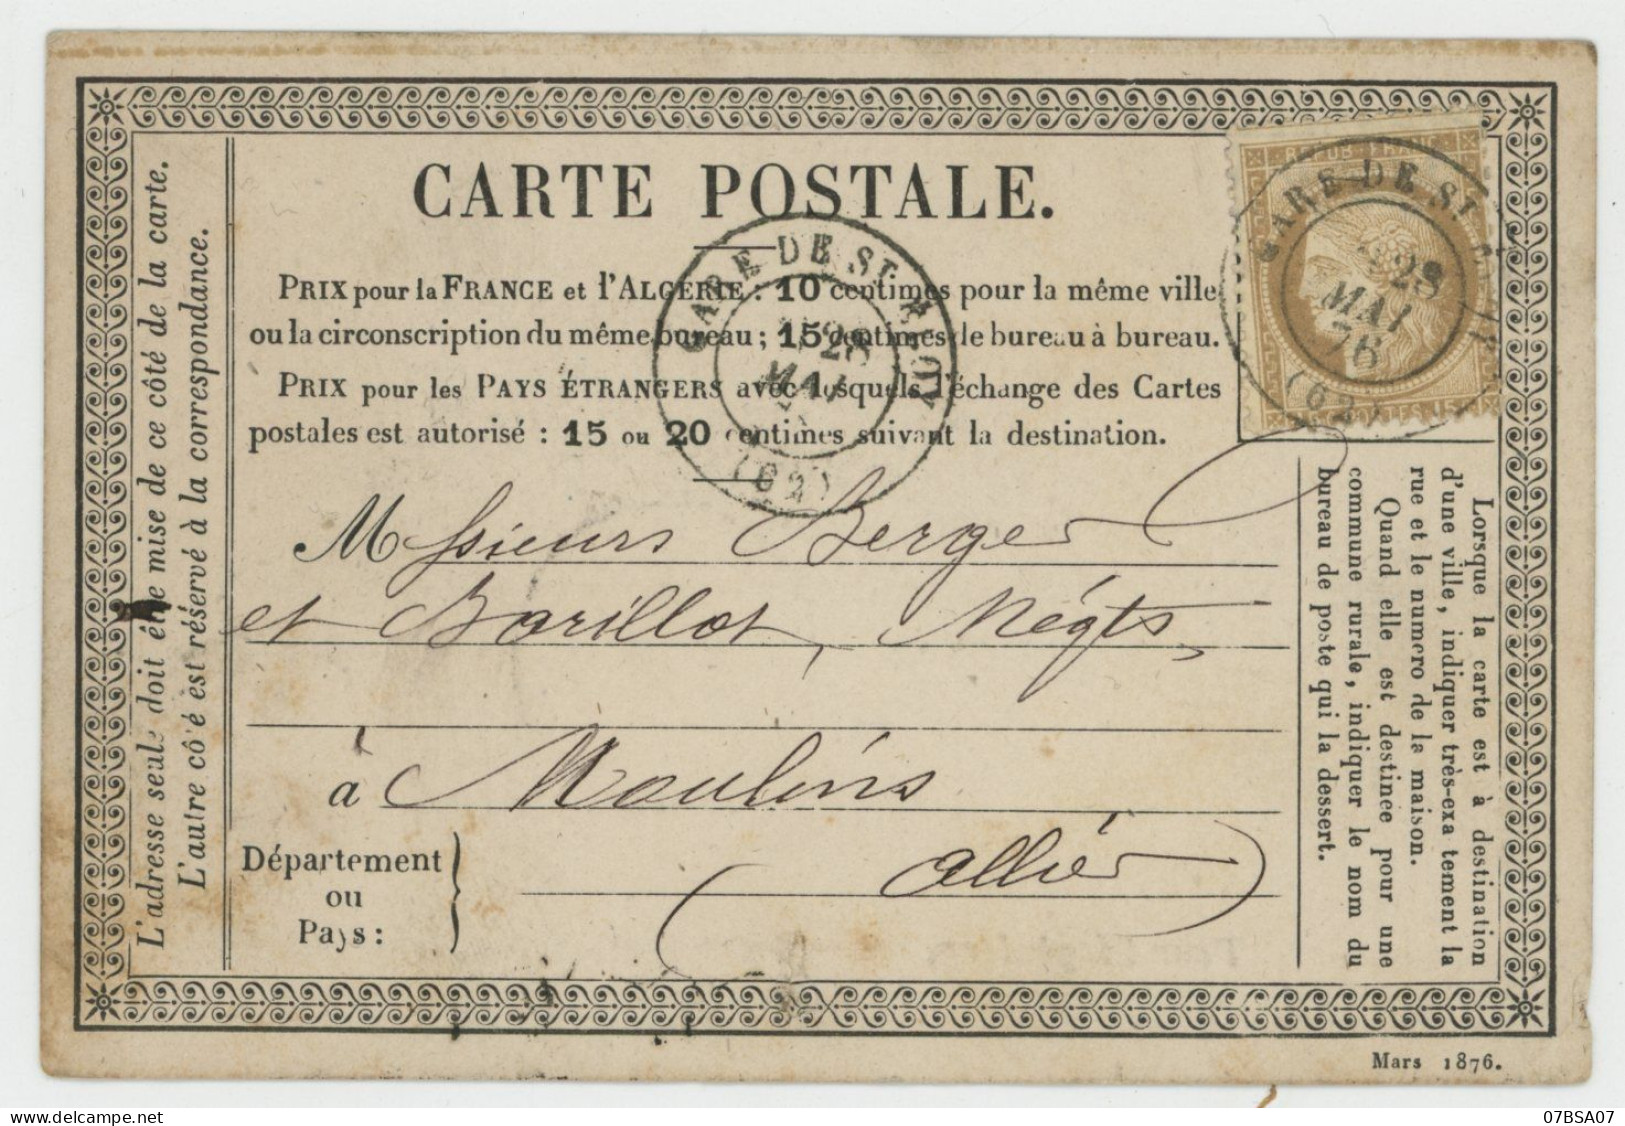 CARTE POSTALE.
PRIX pour la FRANCE et l'ALGÉRIE : 10 centimes pour la même ville
ou la circonscription du même bureau ; 15 centimes de bureau à bureau.
PRIX pour les PAYS ÉTRANGERS avec lesquels l'échange des Cartes
postales est autorisé : 15 ou 20 centimes suivant la destination.
Messieurs Berger
et Barillot, Négts,
à Moulins
Département
ou
Pays :
Allier
L'adresse seule doit être mise de ce côté de la carte.
L'autre côté est réservé à la correspondance.
Lorsque la carte est à destination
d'une ville, indiquer très-exactement la
rue et le numéro de la maison.
Quand elle est destinée pour une
commune rurale, indiquer le nom du
bureau de poste qui la dessert.
GARE DE ST
28
MAI
76
(62)
REPUB FRANC
GARE DE ST
28
MAI
(62)
Mars 1876.
07BSA07